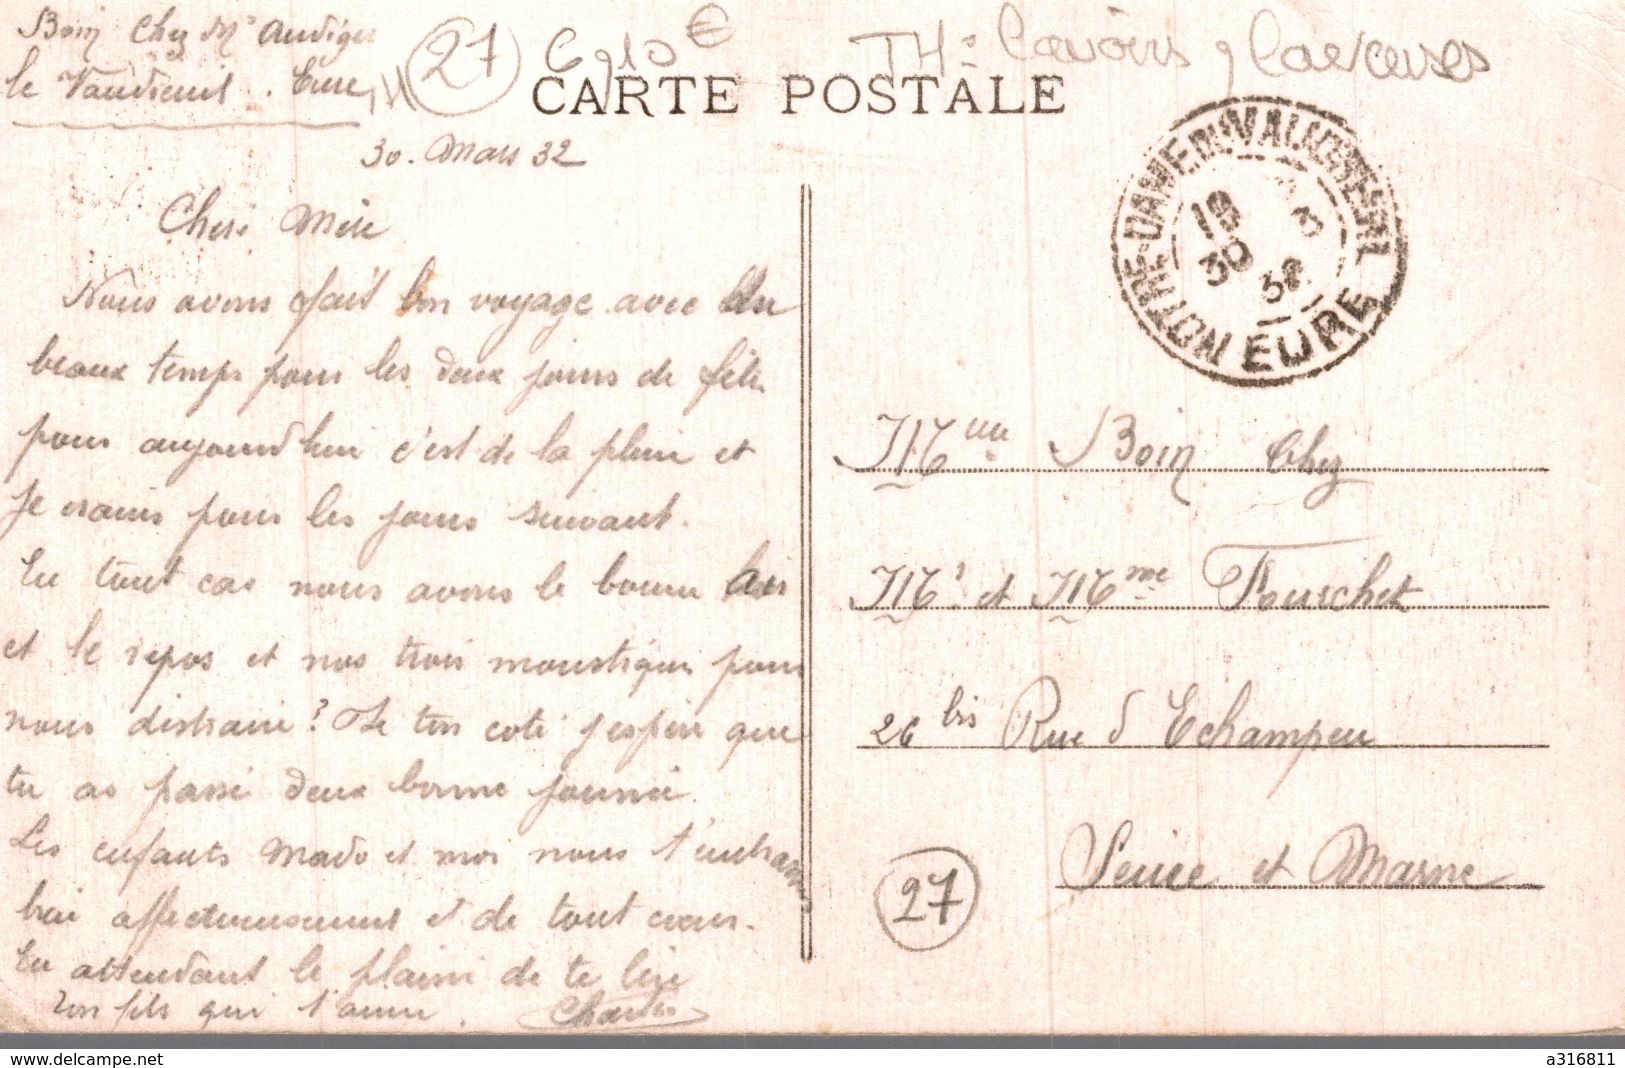 Boin Chez Mr Audiger
le Vaudreuil. Eure
27
TH: Lavoirs, Laveuses
CARTE POSTALE
30. Mars 32
Chere Mère
Nous avons fait bon voyage avec du
beaux temps pour les deux jours de fête
pour aujourd'hui c'est de la pluie et
je crains pour les jours suivant.
En tout cas nous avons le bonne Air
et le repos et nos trois moustique pour
nous distraire? De ton coté j'espère que
tu as passé deux bonne journée.
Les enfants Mado et moi nous t'embrasson
bien affectueusement et de tout cœur.
En attendant le plaisir de te lire
ton fils qui t'aime. Charles
NOTRE-DAME-DU-VAUDREUIL
EURE
30 3
32
Mme Boin Chez
Mr et Mme Fourchet
26 bis Rue d'Echampeu
Seine et Marne
27
www.delcampe.net
a316811